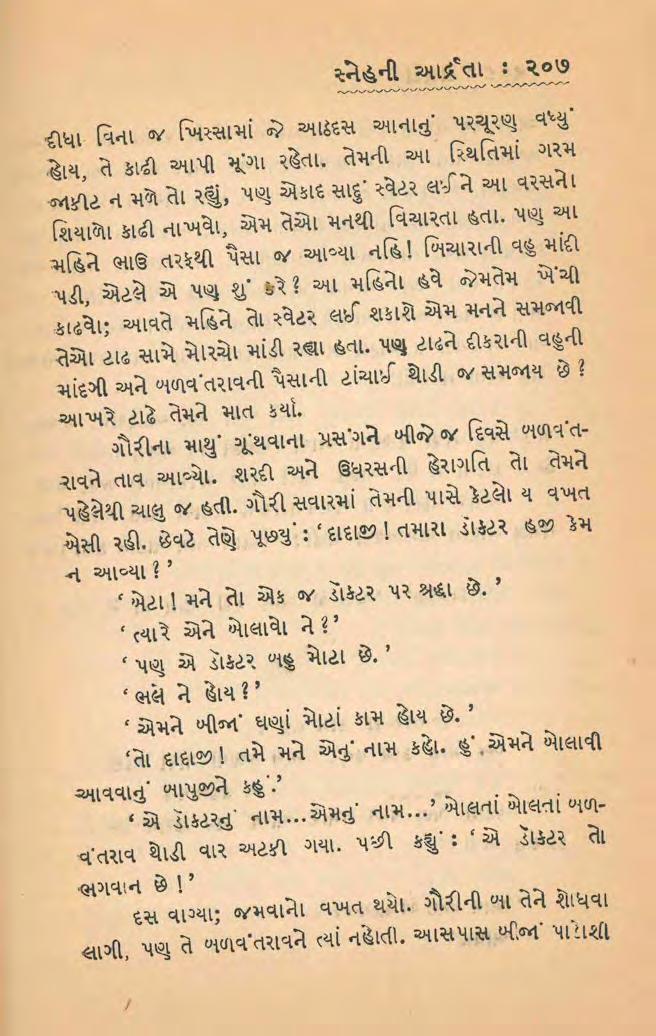 સ્નેહની આર્દ્રતા : ૨૦૭
દીધા વિના જ ખિસ્સામાં જે આઠદસ આનાનું પરચૂરણ વધ્યું
હોય, તે કાઢી આપી મૂંગા રહેતા. તેમની આ સ્થિતિમાં ગરમ
જાકીટ ન મળે તો રહ્યું, પણ એકાદ સાદું સ્વેટર લઈ ને આ વરસનો
શિયાળો કાઢી નાખવો, એમ તેઓ મનથી વિચારતા હતા. પણ આ
મહિને ભાઉ તરફથી પૈસા જ આવ્યા નહિ! બિચારાની વહુ માંદી
પડી, એટલે એ પણ શું કરે? આ મહિનો હવે જેમતેમ ખેંચી
કાઢવો; આવતે મહિને તો સ્વેટર લઈ શકાશે એમ મનને સમજાવી
તેઓ ટાઢ સામે મોરચો માંડી રહ્યા હતા. પણ ટાઢને દીકરાની વહુની
માંદગી અને બળવંતરાવની પૈસાની ટાંચાઈ થોડી જ સમજાય છે?
આખરે ટાઢે તેમને માત કર્યા.
ગૌરીના માથું ગૂંથવાના પ્રસંગને બીજે જ દિવસે બળવંત-
રાવને તાવ આવ્યો. શરદી અને ઉધરસની હેરાગતિ તો તેમને
પહેલેથી ચાલુ જ હતી. ગૌરી સવારમાં તેમની પાસે કેટલો ય વખત
બેસી રહી. છેવટે તેણે પૂછ્યું : ‘દાદાજી! તમારા ડૉક્ટર હજી કેમ
ન આવ્યા?’
‘બેટા! મને તો એક જ ડૉક્ટર પર શ્રદ્ધા છે.’
‘ત્યારે એને બોલાવો ને?’
‘પણ એ ડૉક્ટર બહુ મોટા છે.’
‘ભલે ને હોય?’
‘એમને બીજાં ઘણાં મોટાં કામ હોય છે.’
‘તો દાદાજી! તમે મને એનું નામ કહો. હું એમને બોલાવી
આવવાનું બાપુજીને કહું.’
‘એ ડૉક્ટરનું નામ...એમનું નામ...’ બોલતાં બોલતાં બળ-
વંતરાવ થોડી વાર અટકી ગયા. પછી કહ્યું : ‘એ ડૉક્ટર તો
ભગવાન છે!’
દસ વાગ્યા; જમવાનો વખત થયો. ગૌરીની બા તેને શોધવા
લાગી, પણ તે બળવંતરાવને ત્યાં નહોતી. આસપાસ બીજાં પાડોશી